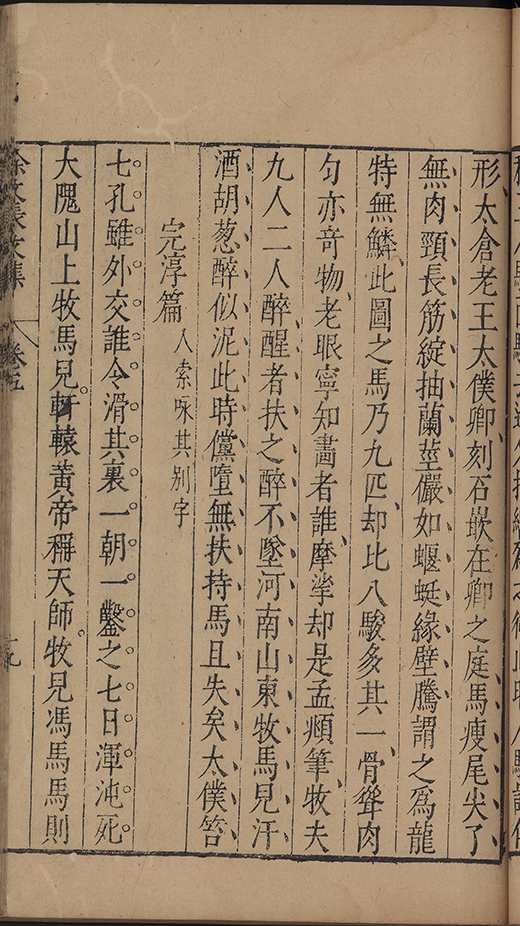 形太倉老王太僕卿刻石嵌在卿之庭馬瘦尾尖了
無肉頸長筋綻抽蘭莖儼如蝘蜓緣壁騰謂之爲龍
特無鱗此圖之馬乃九匹却比八駿多其一骨聳肉
匀亦奇物老眼寧知畵者誰摩挲却是孟頫筆牧夫
九人二人醉醒者扶之醉不墜河南山東牧馬兒汗
酒胡葱醉似泥此時儻墮無扶持馬且失矣太僕笞
完淳篇 人索咏其别字
七孔雖外交誰令滑其裏一朝一鑿之七日渾沌死
大隗山上牧馬兒軒轅黃帝稱天師牧兒馮馬馬則
徐文長文集 卷五